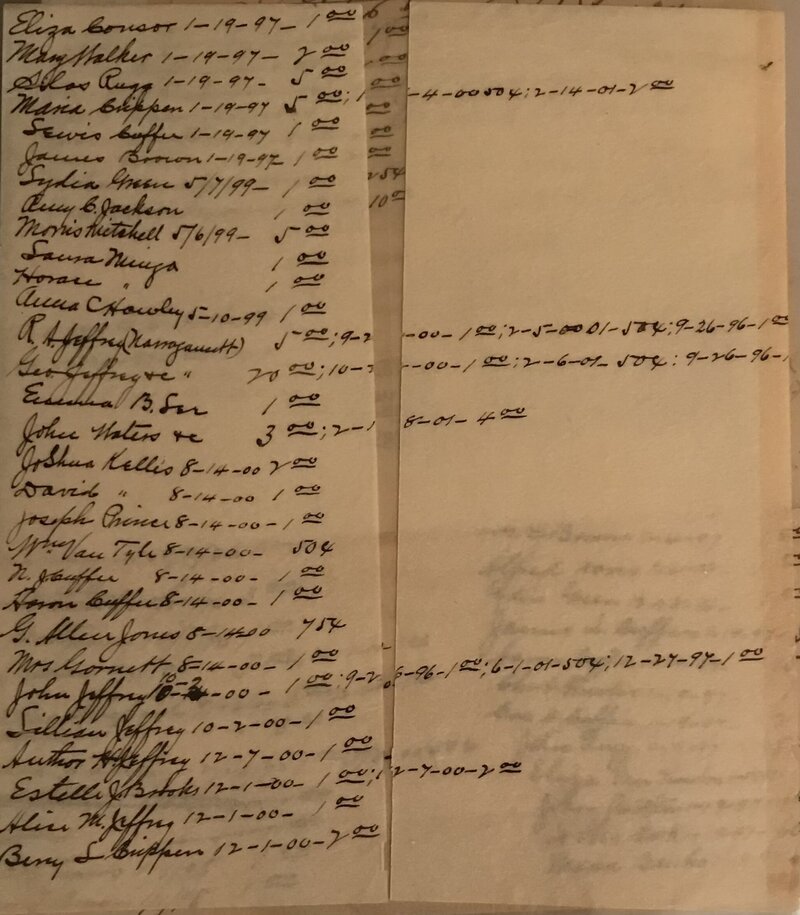 Eliza Consor 1-19-97- 1 00
Mary Walker 1-19-97- 2 00
Silas Rugg 1-19-97- 5 00
Maria Crippen 1-19-97 5 00; 1 -4-00 50¢; 2-14-01-2 00
Lewis Cuffee 1-19-97 1 00
James Brown 1-19-97 1 00
Lydia Green 5/7/99- 1 00
Amy C. Jackson 1 00
Morris Mitchell 5/6/99- 5 00
Laura 1 00
Horace " 1 00
Anna C Hawley 5-10-99 1 00
R. A. Jeffrey (Narragansett) 5 00; 9-2 -00- 1 00; 2-5-00 01-50¢; 9-26-96-1 00
Geo Jeffrey &c " 20 00; 10- -00-1 00; 2-6-01- 50¢: 9-26-96-1
Emma B. 1 00
John Waters &c 3 00; 2-1 8-01- 4 00
Joshua Kellis 8-14-00 2 00
David " 8-14-00 1 00
Joseph Prince 8-14-00-1 00
Wm Van Tyle 8-14-00- 50¢
N. J. Cuffee 8-14-00- 1 00
Aaron Cuffee 8-14-00- 1 00
G. Allen Jones 8-14-00 75¢
Mrs Gornett 8-14-00- 1 00
John Jeffrey 10-2-00- 1 00: 9-2 6-96-1 00; 6-1-01-50¢; 12-27-97-1 00
Lillian Jeffrey 10-2-00-1 00
Author H. Jeffrey 12-7-00-1 00
Estelle J Brooks 12-1-00 1 00; 12-7-00-2 00
Alice M Jeffrey 12-1-00- 1 00
Berry L Crippen 12-1-00-2 00